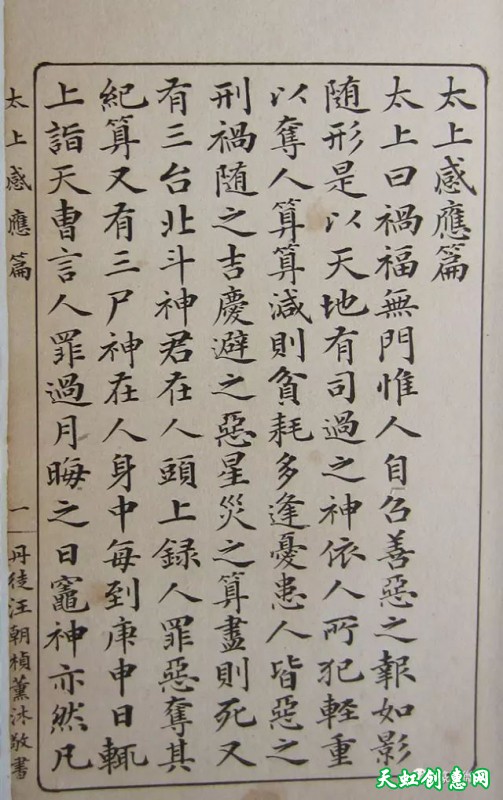 太上感應篇
太上曰禍福無門惟人自召善惡之報如影
随形是以天地有司過之神依人所犯輕重
以奪人算算减則貧耗多逢憂患人皆惡之
刑禍随之吉慶避之惡星災之算盡則死又
有三台北斗神君在人頭上録人罪惡奪其
紀算又有三尸神在人身中每到庚申日輒
上詣天曹言人罪過月晦之日竈神亦然凡
太上感應篇
一
丹徒汪朝楨薰沐敬書
天虹创意网